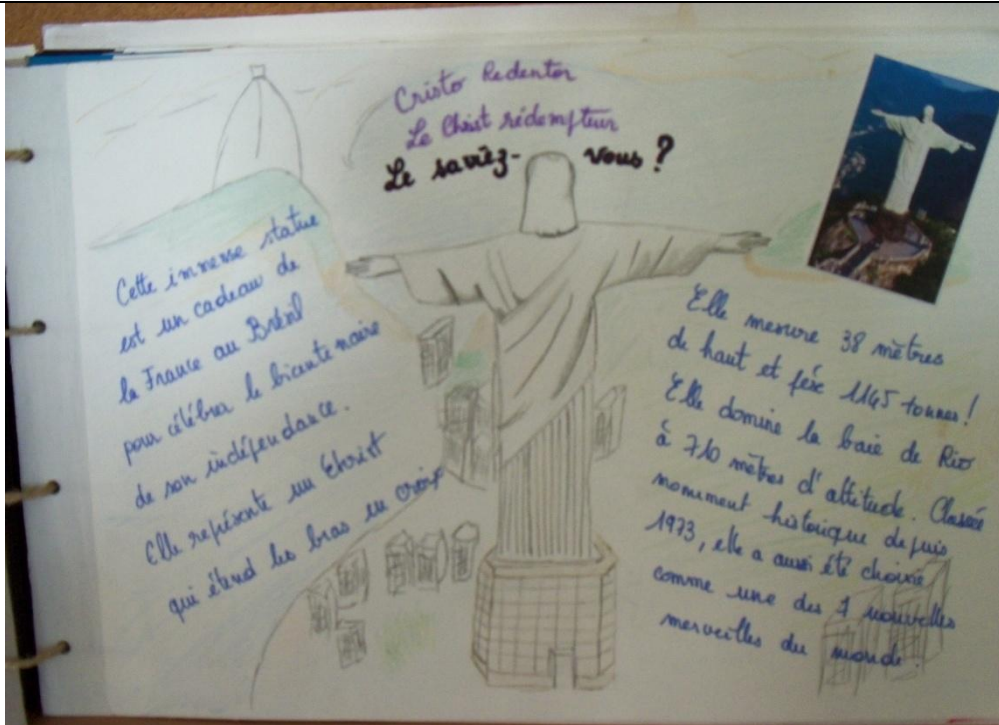 Cristo Redentor
Le Christ rédempteur
Le saviez-vous ?
Cette immense statue
est un cadeau de
la France au Brésil
pour célébrer le bicentenaire
de son indépendance.
Elle représente un Christ
qui étend les bras en croix
Elle mesure 38 mètres
de haut et pèse 1145 tonnes !
Elle domine la baie de Rio
à 710 mètres d'altitude. Classée
monument historique depuis
1973, elle a aussi été choisie
comme une des 7 nouvelles
merveilles du monde.